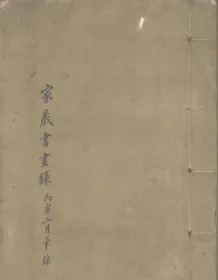 家藏書畫錄 丙寅六月筆錄